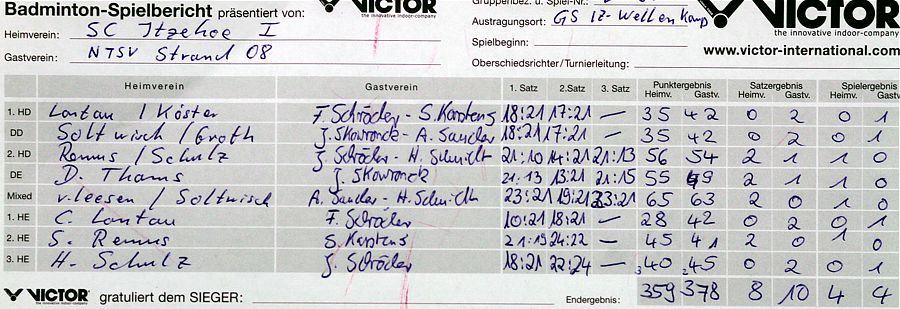 Badminton-Spielbericht präsentiert von: VICTOR the innovative indoor-company
Heimverein: SC Itzehoe I
Gastverein: NTSV Strand 08
Gruppenbez. u. Spiel-Nr.:
Austragungsort: GS IZ-Wellenkamp
Spielbeginn:
Oberschiedsrichter/Turnierleitung:
VICTOR
the innovative indoor-company
www.victor-international.com
Heimverein Gastverein 1. Satz 2.Satz 3. Satz Punktergebnis Heimv. Gastv. Satzergebnis Heimv. Gastv. Spielergebnis Heimv. Gastv.
1. HD Lantau / Köster F. Schröder - S. Karstens 18:21 17:21 — 35 42 0 2 0 1
DD Soltwisch / Groth J. Skowronek - A. Sander 18:21 17:21 — 35 42 0 2 0 1
2. HD Remus / Schulz J. Schröder - H. Schmidt 21:10 14:21 21:13 56 54 2 1 1 0
DE D. Thams J. Skowronek 21:13 13:21 21:15 55 49 2 1 1 0
Mixed v.Leesen / Soltwisch A. Sander - H. Schmidt 23:21 19:21 23:21 65 63 2 0 1 0
1. HE C. Lantau F. Schröder 10:21 18:21 — 28 42 0 2 0 1
2. HE S. Remus S. Karstens 21:19 24:22 — 45 41 2 0 1 0
3. HE H. Schulz J. Schröder 18:21 22:24 — 40 45 0 2 0 1
VICTOR the innovative indoor-company gratuliert dem SIEGER: Endergebnis: 359 378 8 10 4 4